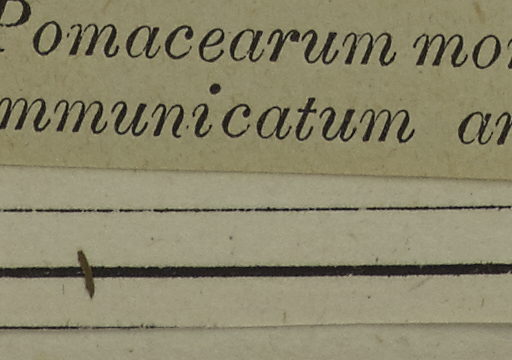 Pomacearum mon
mmunicatum an